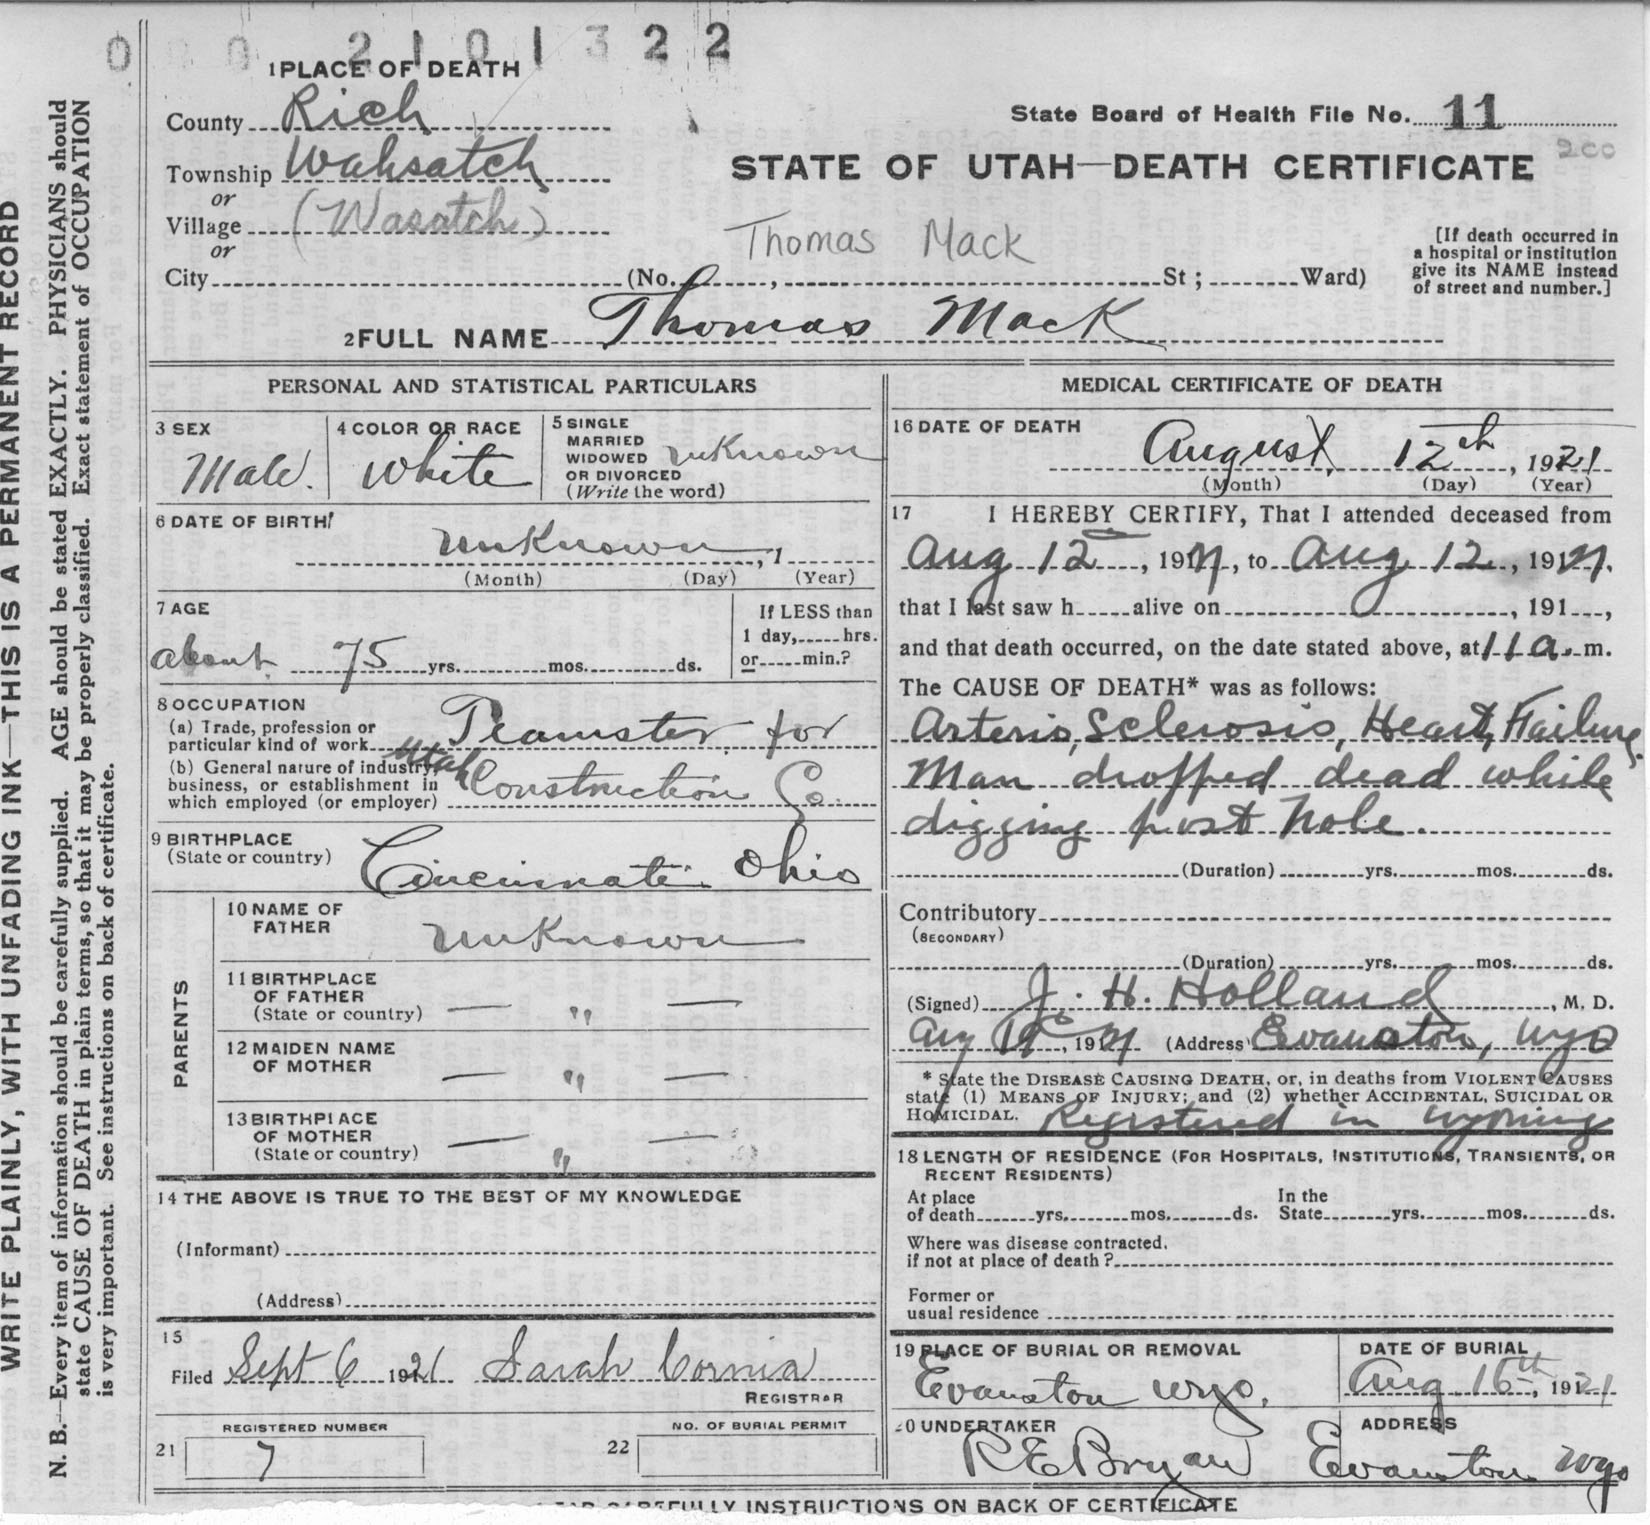 0 0 0 2 1 0 1 3 2 2
1 PLACE OF DEATH
County Rich
Township Wahsatch
or
Village (Wasatch)
or
City (No. , St ; Ward)
State Board of Health File No. 11
200
STATE OF UTAH—DEATH CERTIFICATE
Thomas Mack
[If death occurred in
a hospital or institution
give its NAME instead
of street and number.]
2 FULL NAME Thomas Mack
PERSONAL AND STATISTICAL PARTICULARS
3 SEX
Male.
4 COLOR OR RACE
White
5 SINGLE
MARRIED
WIDOWED
OR DIVORCED
(Write the word)
unKnown
6 DATE OF BIRTH
unKnown , 1
(Month) (Day) (Year)
7 AGE
about 75 yrs. mos. ds.
If LESS than
1 day, hrs.
or min.?
8 OCCUPATION
(a) Trade, profession or
particular kind of work Teamster for
(b) General nature of industry,
business, or establishment in
which employed (or employer)
Utah Construction Co.
9 BIRTHPLACE
(State or country)
Cincinnati Ohio
PARENTS
10 NAME OF
FATHER
unKnown
11 BIRTHPLACE
OF FATHER
(State or country)
— " —
12 MAIDEN NAME
OF MOTHER
— " —
13 BIRTHPLACE
OF MOTHER
(State or country)
— " —
14 THE ABOVE IS TRUE TO THE BEST OF MY KNOWLEDGE
(Informant)
(Address)
15
Filed Sept 6 1921 Sarah Cornia
REGISTRAR
REGISTERED NUMBER
21 7
NO. OF BURIAL PERMIT
22
MEDICAL CERTIFICATE OF DEATH
16 DATE OF DEATH
August 12th, 1921
(Month) (Day) (Year)
17 I HEREBY CERTIFY, That I attended deceased from
Aug 12, 1921, to Aug 12, 1921,
that I last saw h alive on , 191 ,
and that death occurred, on the date stated above, at 11 a. m.
The CAUSE OF DEATH* was as follows:
Arterio, Sclerosis, Heart, Failure.
Man dropped dead while
digging post hole.
(Duration) yrs. mos. ds.
Contributory
(SECONDARY)
(Duration) yrs. mos. ds.
(Signed) J. H. Holland, M. D.
Aug , 1921 (Address) Evanston, Wyo
* State the DISEASE CAUSING DEATH, or, in deaths from VIOLENT CAUSES
state (1) MEANS OF INJURY; and (2) whether ACCIDENTAL, SUICIDAL OR
HOMICIDAL. Registered in Wyoming
18 LENGTH OF RESIDENCE (FOR HOSPITALS, INSTITUTIONS, TRANSIENTS, OR
RECENT RESIDENTS)
At place
of death yrs. mos. ds.
In the
State yrs. mos. ds.
Where was disease contracted,
if not at place of death ?
Former or
usual residence
19 PLACE OF BURIAL OR REMOVAL
Evanston Wyo.
DATE OF BURIAL
Aug 15th, 1921
20 UNDERTAKER
R E Bryan
ADDRESS
Evanston Wyo
CAREFULLY INSTRUCTIONS ON BACK OF CERTIFICATE
WRITE PLAINLY, WITH UNFADING INK—THIS IS A PERMANENT RECORD
N. B.—Every item of information should be carefully supplied. AGE should be stated EXACTLY. PHYSICIANS should
state CAUSE OF DEATH in plain terms, so that it may be properly classified. Exact statement of OCCUPATION
is very important. See instructions on back of certificate.